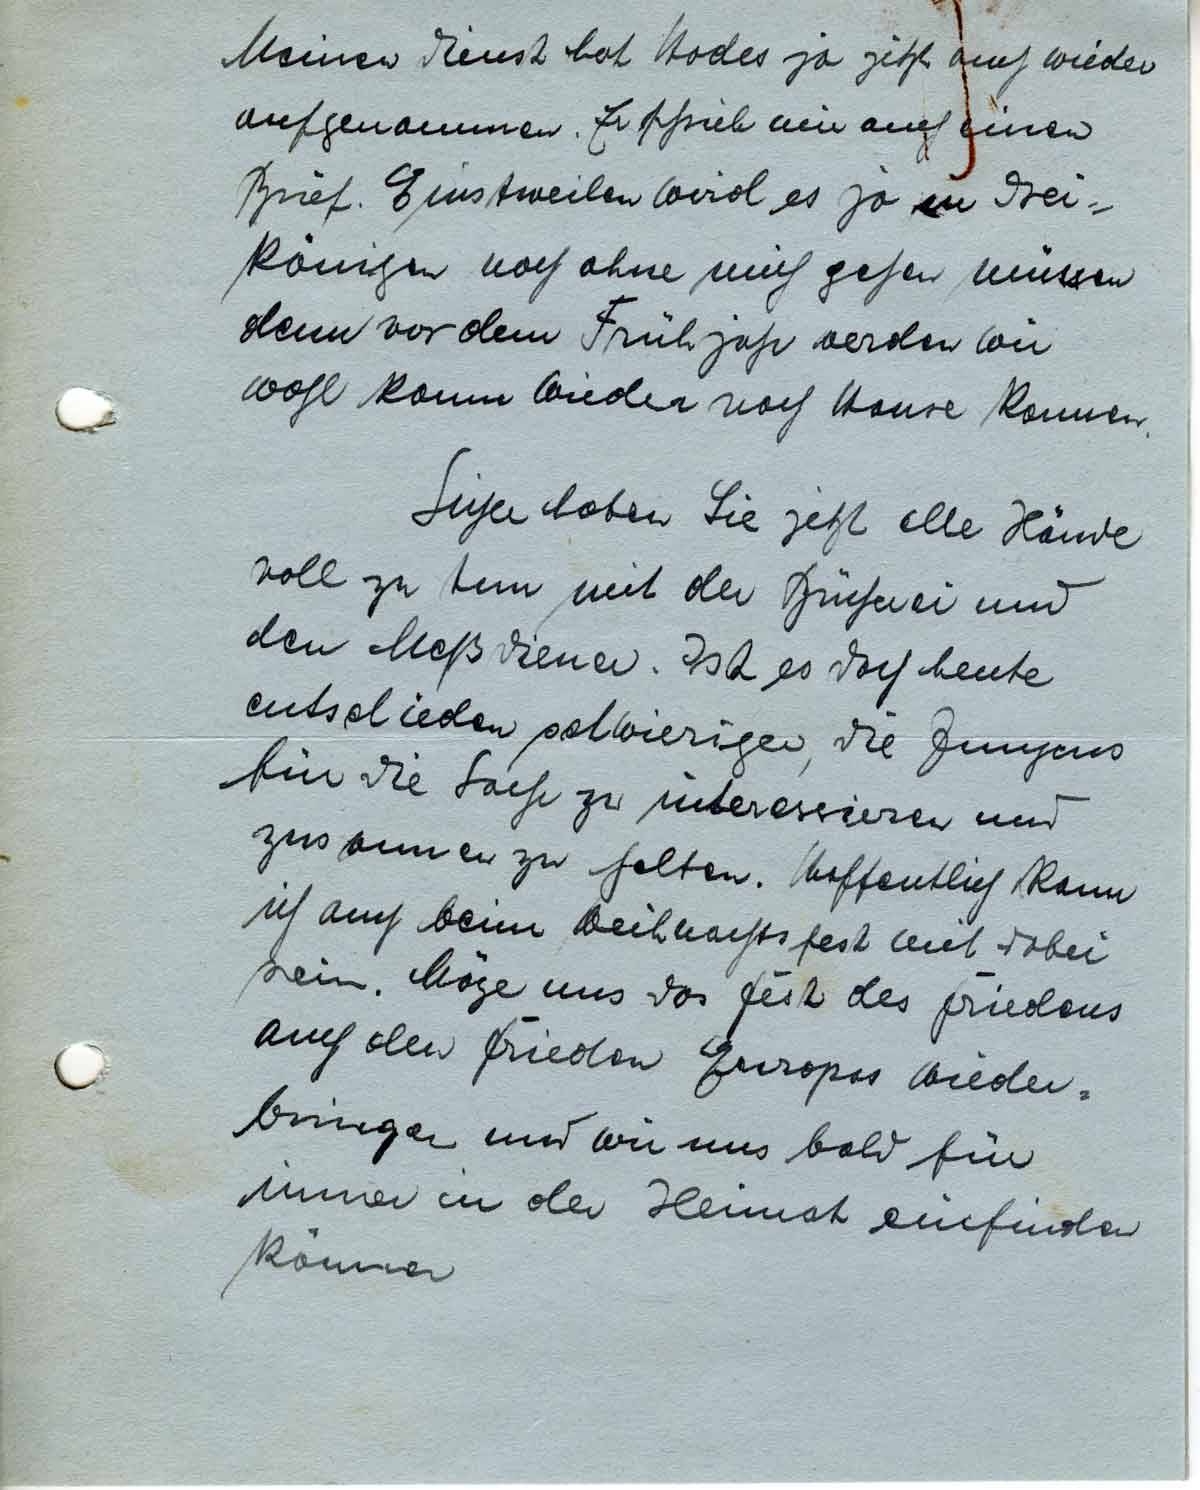 Meinen Dienst hat Hodes ja jetzt auch wieder
aufgenommen. Er schrieb mir auch einen
Brief. Einstweilen wird es ja in Drei=
königen noch ohne mich gehen müssen
denn vor dem Frühjahr werden wir
wohl kaum wieder nach Hause kommen.
Sicher haben Sie jetzt alle Hände
voll zu tun mit der Bücherei und
den Meßdiener. Ist es doch heute
entschieden schwieriger, die Jungens
für die Sache zu interessieren und
zusammen zu halten. Hoffentlich kann
ich auch beim Weihnachtsfest mit dabei
sein. Möge uns das Fest des Friedens
auch den Frieden Europas wieder=
bringen und wir uns bald für
immer in der Heimat einfinden
können